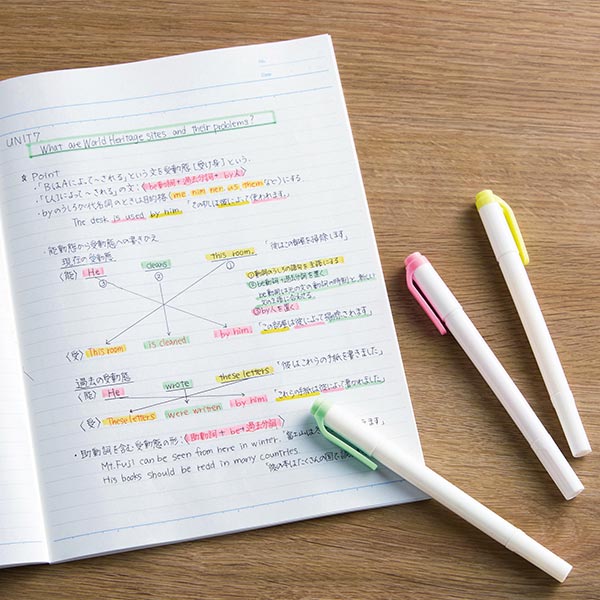 No.
Date
UNIT7
What are World Heritage sites and their problems?
Point
・「BはAによって〜される」という文を受動態(受け身)という。
・「(人)によって〜される」の文:(be動詞+過去分詞+by 人)
・byのうしろが代名詞のときは目的格(me him her us themなど)にする。
The desk is used by him. 「その机は彼によって使われます。」
・能動態から受動態への書きかえ
現在の受動態
〈能〉 He cleans this room 「彼はこの部屋を掃除します」
③ ② ①
①動詞のうしろの語句を主語にする
②be動詞+過去分詞を置く
be動詞は元の文の動詞の時制と、新しい
文の主語に合わせる。
③by人を置く
〈受〉 This room is cleaned by him 「この部屋は彼によって掃除されます。」
過去の受動態
〈能〉 He wrote these letters 「彼はこれらの手紙を書きました」
〈受〉 These letters were written by him 「これらの手紙は彼によって書かれました。」
・助動詞を含む受動態の形:(助動詞+be+過去分詞)
Mt.Fuji can be seen from here in winter. 「富士山は ます」
His books should be read in many countries. 「彼の本はたくさんの国で読